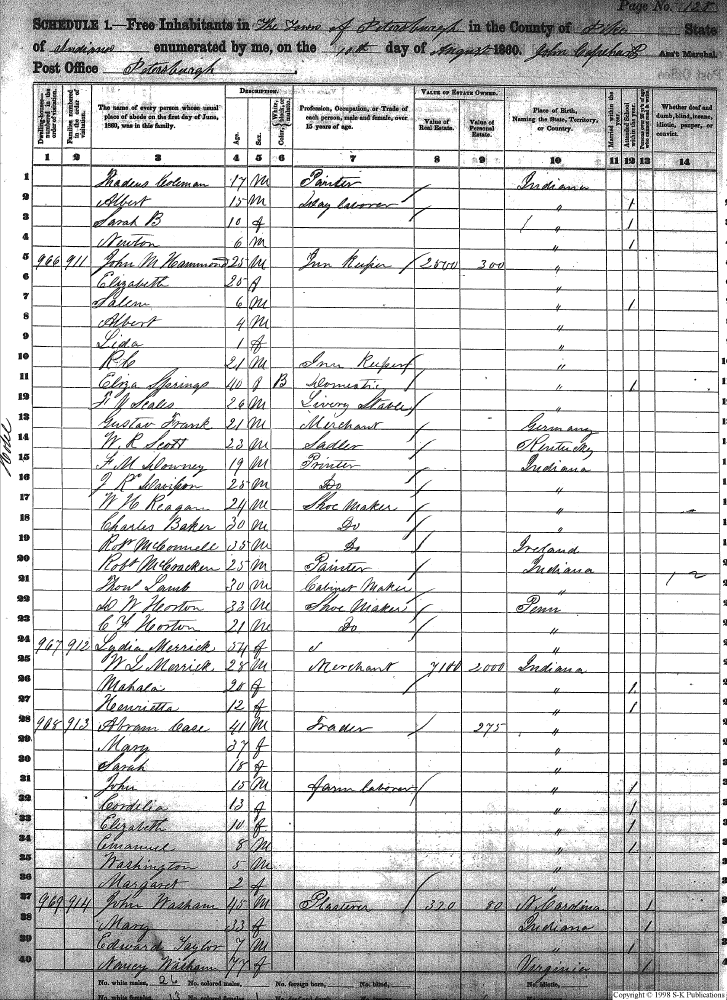 Page No. 128
SCHEDULE 1.—Free Inhabitants in The Town of Petersburgh in the County of Pike State
of Indiana enumerated by me, on the 10th day of August 1860. John Capehart Ass't Marshal.
Post Office Petersburgh
Dwelling-houses numbered in the order of visitation. Families numbered in the order of visitation. The name of every person whose usual place of abode on the first day of June, 1860, was in this family. DESCRIPTION. Age. Sex. Color, Profession, Occupation, or Trade of each person, male and female, over 15 years of age. VALUE OF ESTATE OWNED. Value of Real Estate. Value of Personal Estate. Place of Birth, Naming the State, Territory, or Country. Married within the year. Attended School within the year. Whether deaf and dumb, blind, insane, idiotic, pauper, or convict.
1 2 3 4 5 6 7 8 9 10 11 12 13 14
1 Thadeus Coleman 17 M Painter / Indiana
2 Albert 15 M Day laborer / " 1
3 Sarah B 10 f / " 1
4 Newton 6 M " 1
5 966 911 John M Hammond 25 M Inn Keeper / 2500 300 "
6 Elizabeth 20 f "
7 Salem 6 M " 1
8 Albert 4 M "
9 Lida 1 f "
10 R C 21 M Inn Keeper / "
11 Eliza Springs 40 f B Domestic / " 1
12 F J Scales 26 M Livery Stable / "
13 Gustav Frank 21 M Merchant / Germany
14 W R Scott 23 M Sadler / Kentucky
15 F M Downey 19 M Printer / Indiana
16 J R Davidson 25 M Do / "
17 W H Reagan 24 M Shoe Maker / "
18 Charles Baker 30 M Do / "
19 Robt McConnell 35 M Do / Ireland
20 Robt McCracken 25 M Painter / Indiana
21 Thos Lamb 30 M Cabinet Maker / "
22 D W Horton 33 M Shoe Maker / Penn
23 C F Horton 21 M Do / "
24 967 912 Lydia Merrick 54 f "
25 W L Merrick 28 M Merchant 7100 2000 Indiana
26 Mahala 20 f " 1
27 Henrietta 12 f " 1
28 968 913 Abram Case 41 M Trader / 275 "
29 Mary 37 f "
30 Sarah 18 f "
31 John 15 M farm laborer / " 1
32 Cordelia 13 f " 1
33 Elizabeth 10 f " 1
34 Emanuel 8 M " 1
35 Washington 5 M "
36 Margaret 2 f "
37 969 914 John Washam 45 M Plasterer / 320 80 N Carolina 1
38 Mary 33 f Indiana 1
39 Edward Taylor 7 M " 1
40 Nancy Washam 77 f Virginia 1
No. white males, 26 No. colored males, No. foreign born, No. blind, No. idiotic,
No. white females, 13 No. colored females,
Hotel
Copyright © 1998 S-K Publications